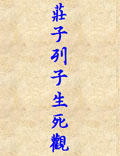 莊子列子生死觀